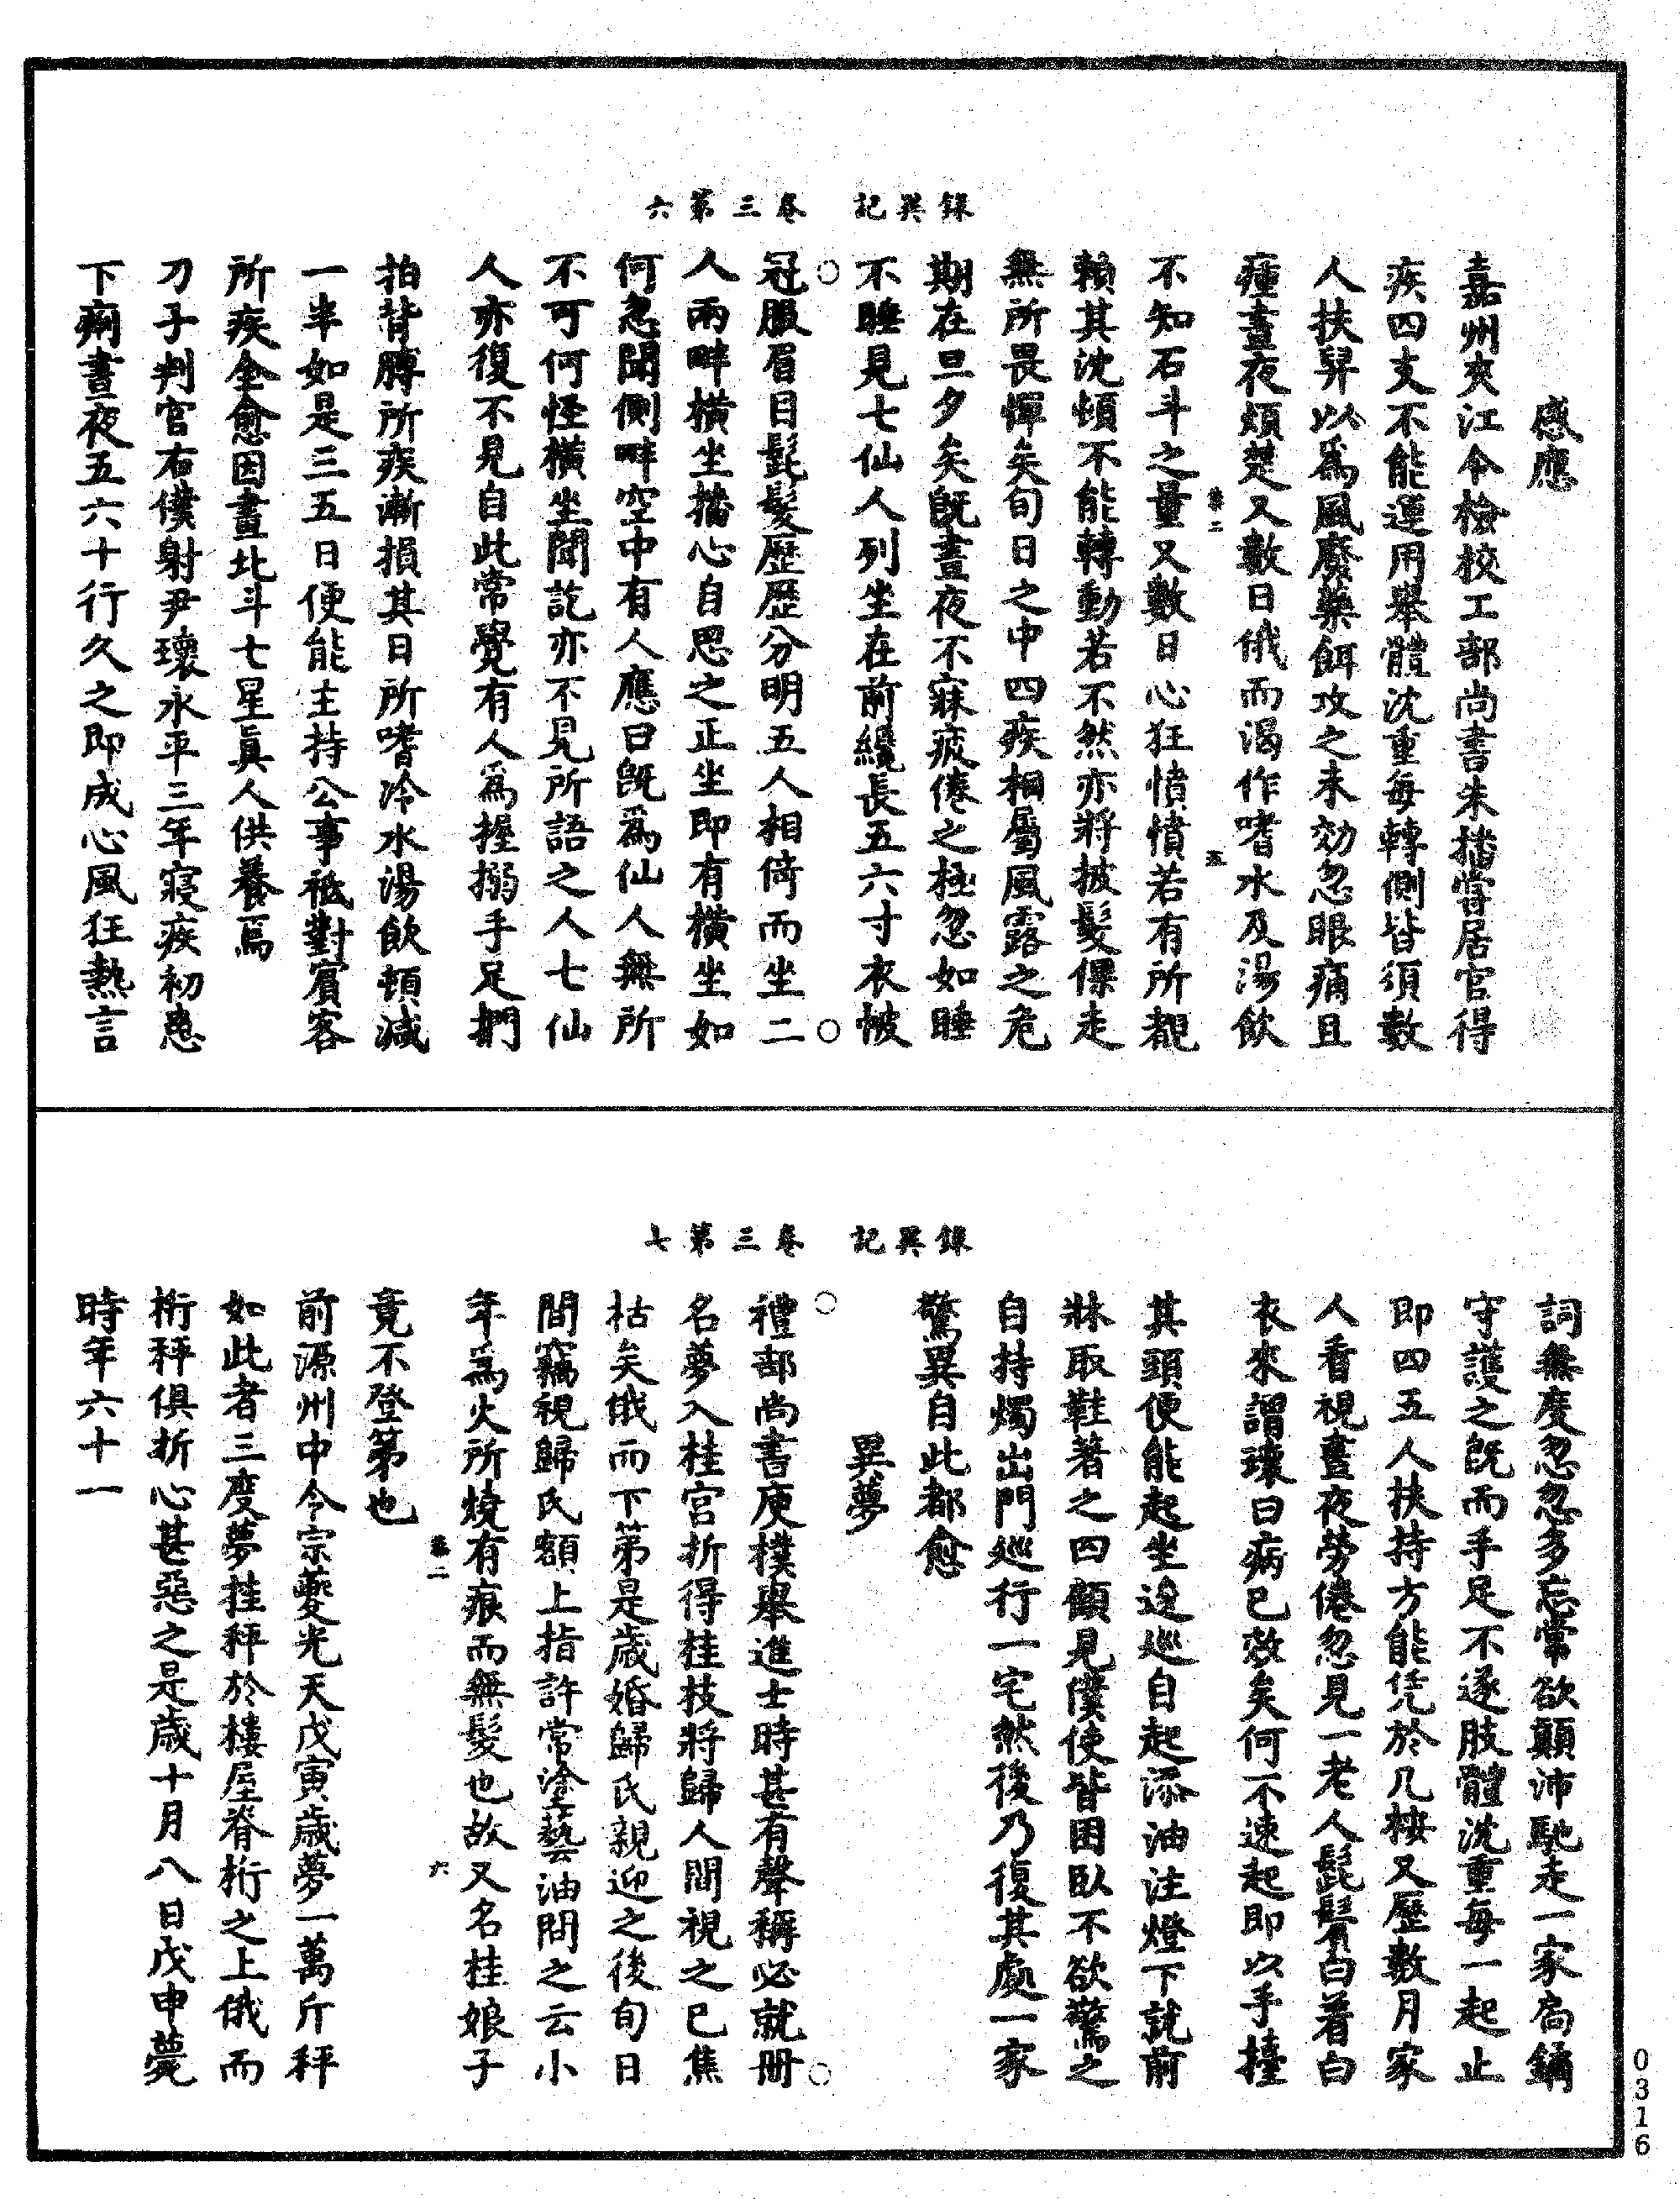 錄異記　卷三第六
感應
嘉州夾江令檢校工部尚書朱播嘗居官得
疾四支不能運用舉體沈重每轉側皆須數
人扶舁以爲風廢藥餌攻之未効忽眼痛且
瘇晝夜煩楚又數日俄而渴作嗜水及湯飲
不知石斗之量又數日心狂憤憤若有所覩
賴其沈頓不能轉動若不然亦將披髮倮走
無所畏憚矣旬日之中四疾相屬風露之危
期在旦夕矣旣晝夜不寐疲倦之極忽如睡
不睡見七仙人列坐在前纔長五六寸衣帔
冠服眉目髭髮歷歷分明五人相倚而坐二
人兩畔橫坐播心自思之正坐即有橫坐如
何忽聞側畔空中有人應曰旣爲仙人無所
不可何怪橫坐聞訖亦不見所語之人七仙
人亦復不見自此常覺有人爲握搦手足捫
拍背膊所疾漸損其日所嗜冷水湯飲頓減
一半如是三五日便能主持公事祗對賓客
所疾全愈因畫北斗七星眞人供養焉
刀子判官右僕射尹瓌永平三年寢疾初患
下痢晝夜五六十行久之即成心風狂熱言
卷二
五
錄異記　卷三第七
詞無度忽忽多忘常欲顛沛馳走一家扃鏁
守護之旣而手足不遂肢體沈重每一起止
即四五人扶持方能凭於几榻又歷數月家
人看視晝夜勞倦忽見一老人髭鬢白著白
衣來謂瓌曰病已效矣何不速起即以手擡
其頭便能起坐逡巡自起添油注燈下就前
牀取鞋著之四顧見僕使皆困臥不欲驚之
自持燭出門巡行一宅然後乃復其處一家
驚異自此都愈
異夢
禮部尚書庾樸舉進士時甚有聲稱必就冊
名夢入桂宮折得桂枝將歸人間視之已焦
枯矣俄而下第是歲婚歸氏親迎之後旬日
間竊視歸氏額上指許常塗藝油問之云小
年爲火所燒有痕而無髮也故又名桂娘子
竟不登第也
前源州中令宗夔光天戊寅歲夢一萬斤秤
如此者三度夢挂秤於樓屋脊桁之上俄而
桁秤俱折心甚惡之是歲十月八日戊申薨
時年六十一
卷二
六
0316